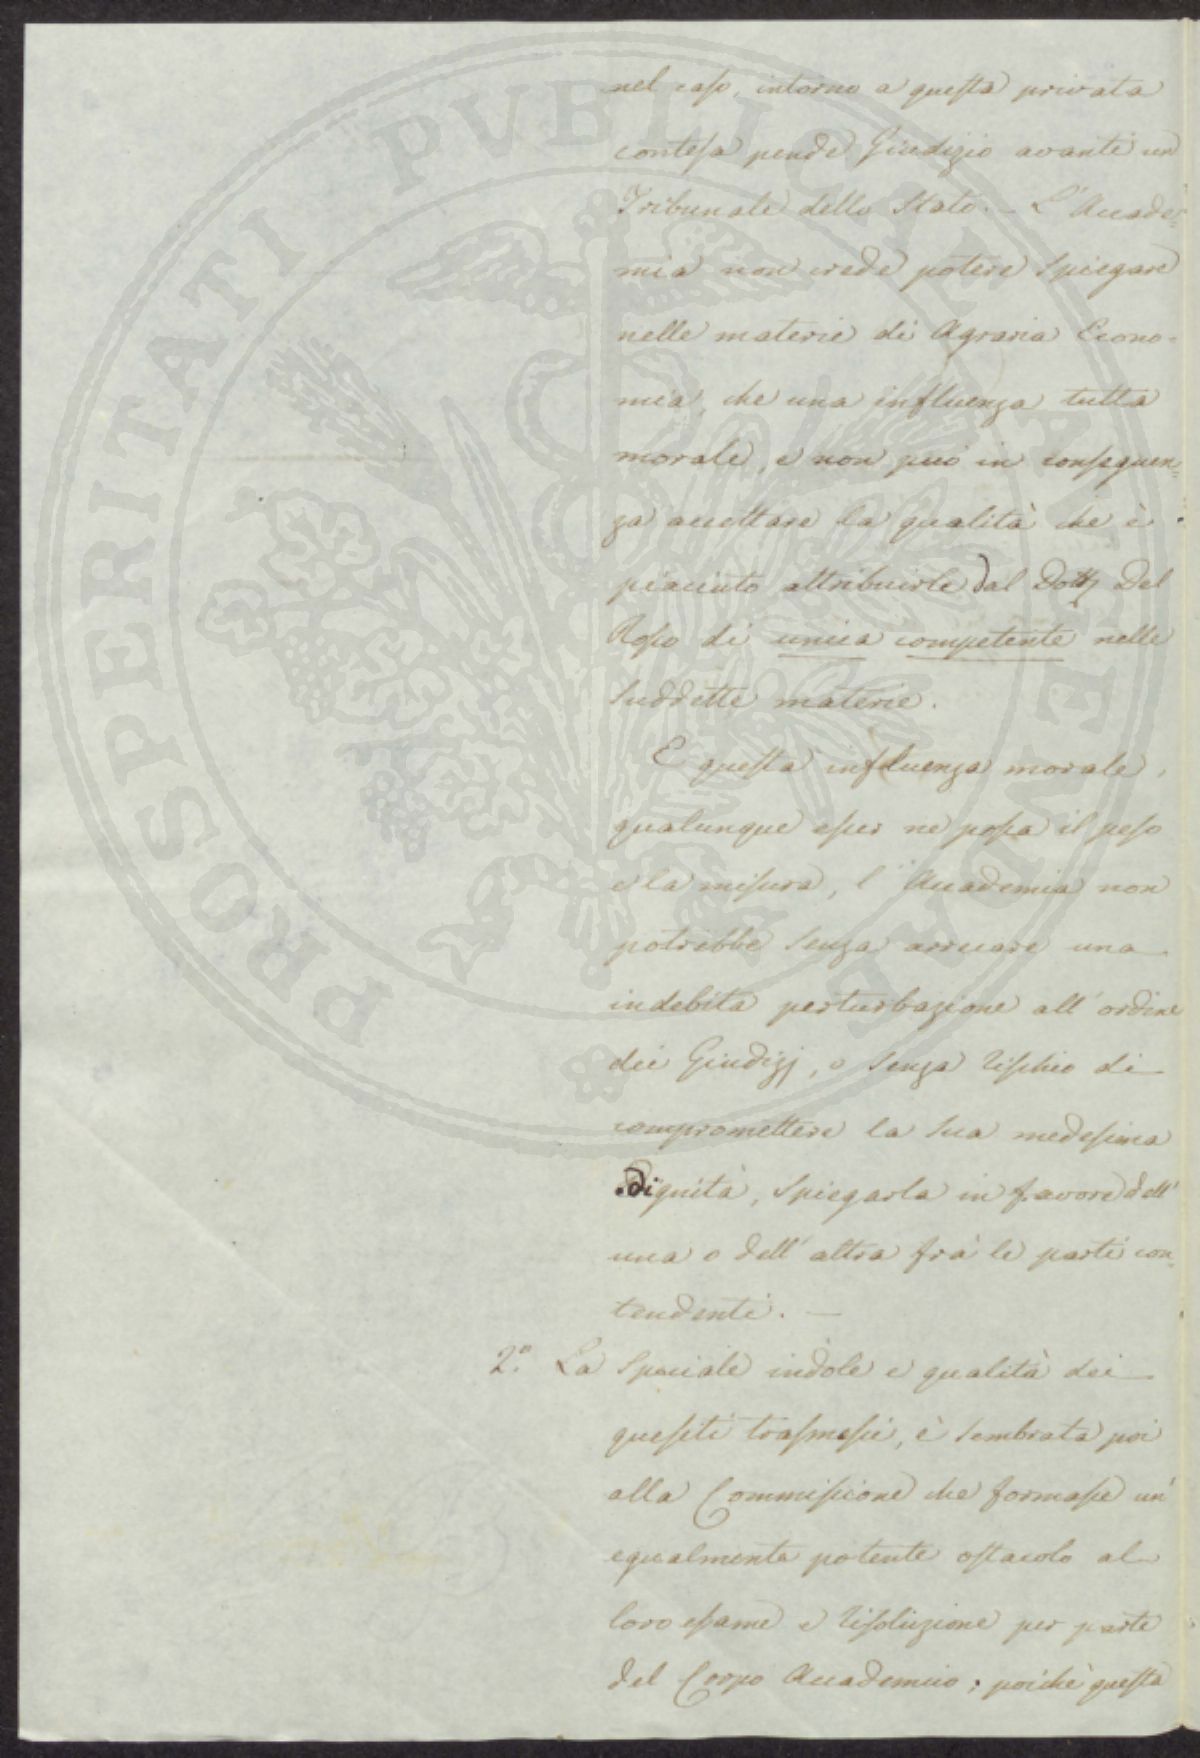 PROSPERITATI PVBLICAE AVGENDAE
nel caso, intorno a questa privata
contesa pende Giudizio avanti un
Tribunale dello Stato. – L'Accade=
mia non crede potere spiegare
nelle materie di Agraria Econo=
mia, che una influenza tutta
morale, e non può in conseguen=
za accettare la qualità che è
piaciuto attribuirle dal Dott. Del
Rosso di unica competente nelle
suddette materie.
E questa influenza morale,
qualunque esser ne possa il peso
e la misura, l'Accademia non
potrebbe senza arrecare una
indebita perturbazione all'ordine
dei Giudizj, o senza rischio di
compromettere la sua medesima
dignità, spiegarla in favore dell'
una o dell'altra frà le parti con=
tendenti. –
2.° La speciale indole e qualità dei
quesiti trasmessi, è sembrata poi
alla Commissione che formasse un'
egualmente potente ostacolo al
loro esame e risoluzione per parte
del Corpo Accademico; poichè questa